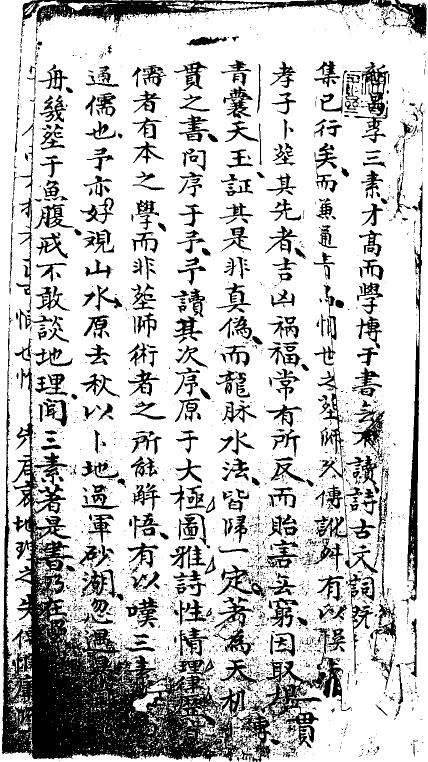 李三素才高而學博于書無不讀詩古文詞既
集已行矣而兼通青烏憫世之塟師久傳訛舛有以悞
孝子卜塟其先者吉凶禍福常有所反而貽害無窮因取楊
青囊天玉証其是非真偽而龍脉水法皆歸一定著為天机一貫
貫之書問序于予予讀其次序原于太極圖雅詩性情理
儒者有本之學而非塟師術者之所能解悟有以嘆三素
通儒也予亦好觀山水原去秋以卜地過軍砂湖忽遇
舟幾塟于魚腹戒不敢談地理聞三素著是書乃在